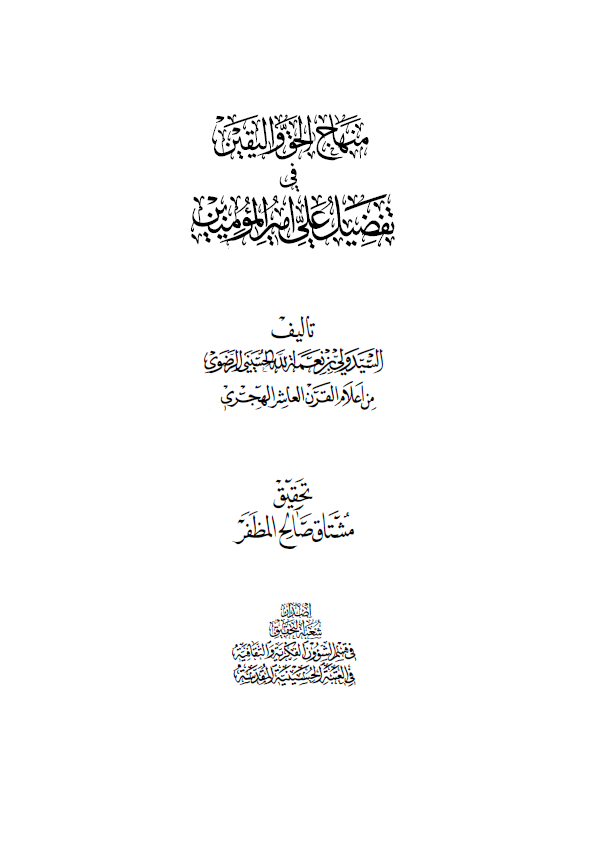 منهاج الحق واليقين
في
تفضيل علي أمير المؤمنين
تأليف
السيد ولي بن نعمة الله الحسيني الرضوي
من أعلام القرن العاشر الهجري
تحقيق
مشتاق صالح المظفر
إصدار
شعبة التحقيق
في قسم الشؤون الفكرية والثقافية
في العتبة الحسينية المقدسة